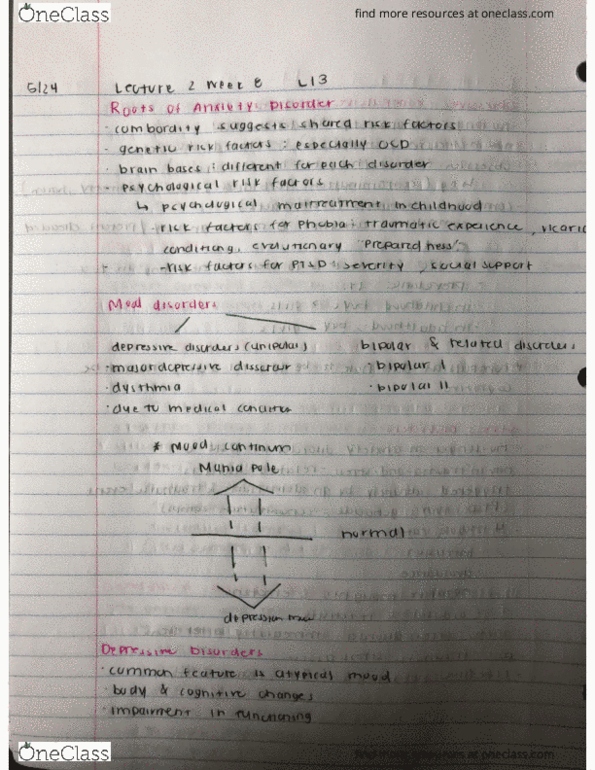 OneClass
find more resources at oneclass.com
5/24 Lecture 2 Week 8 L13
Roots of Anxiety Disorder
· combordity suggests shared risk factors
· genetic risk factors : especially OCD
· brain bases : different for each disorder
· psychological risk factors
↳ psychological maltreatment in childhood
- risk factors for Phobia : traumatic experience, vicario
conditiong, evolutionary "Preparedness"
- risk factors for PTSD : severity, social support
Mood disorders
depressive disorders (unipolar) bipolar & related disorders
· major depressive disorder · bipolar I
· dysthmia · bipolar II
· due to medical
* Mood continum
Mania pole
normal
depression
Depressive Disorders
· common feature is atypical mood
· body & cognitive changes
· impairment in functioning
OneClass
find more resources at oneclass.com